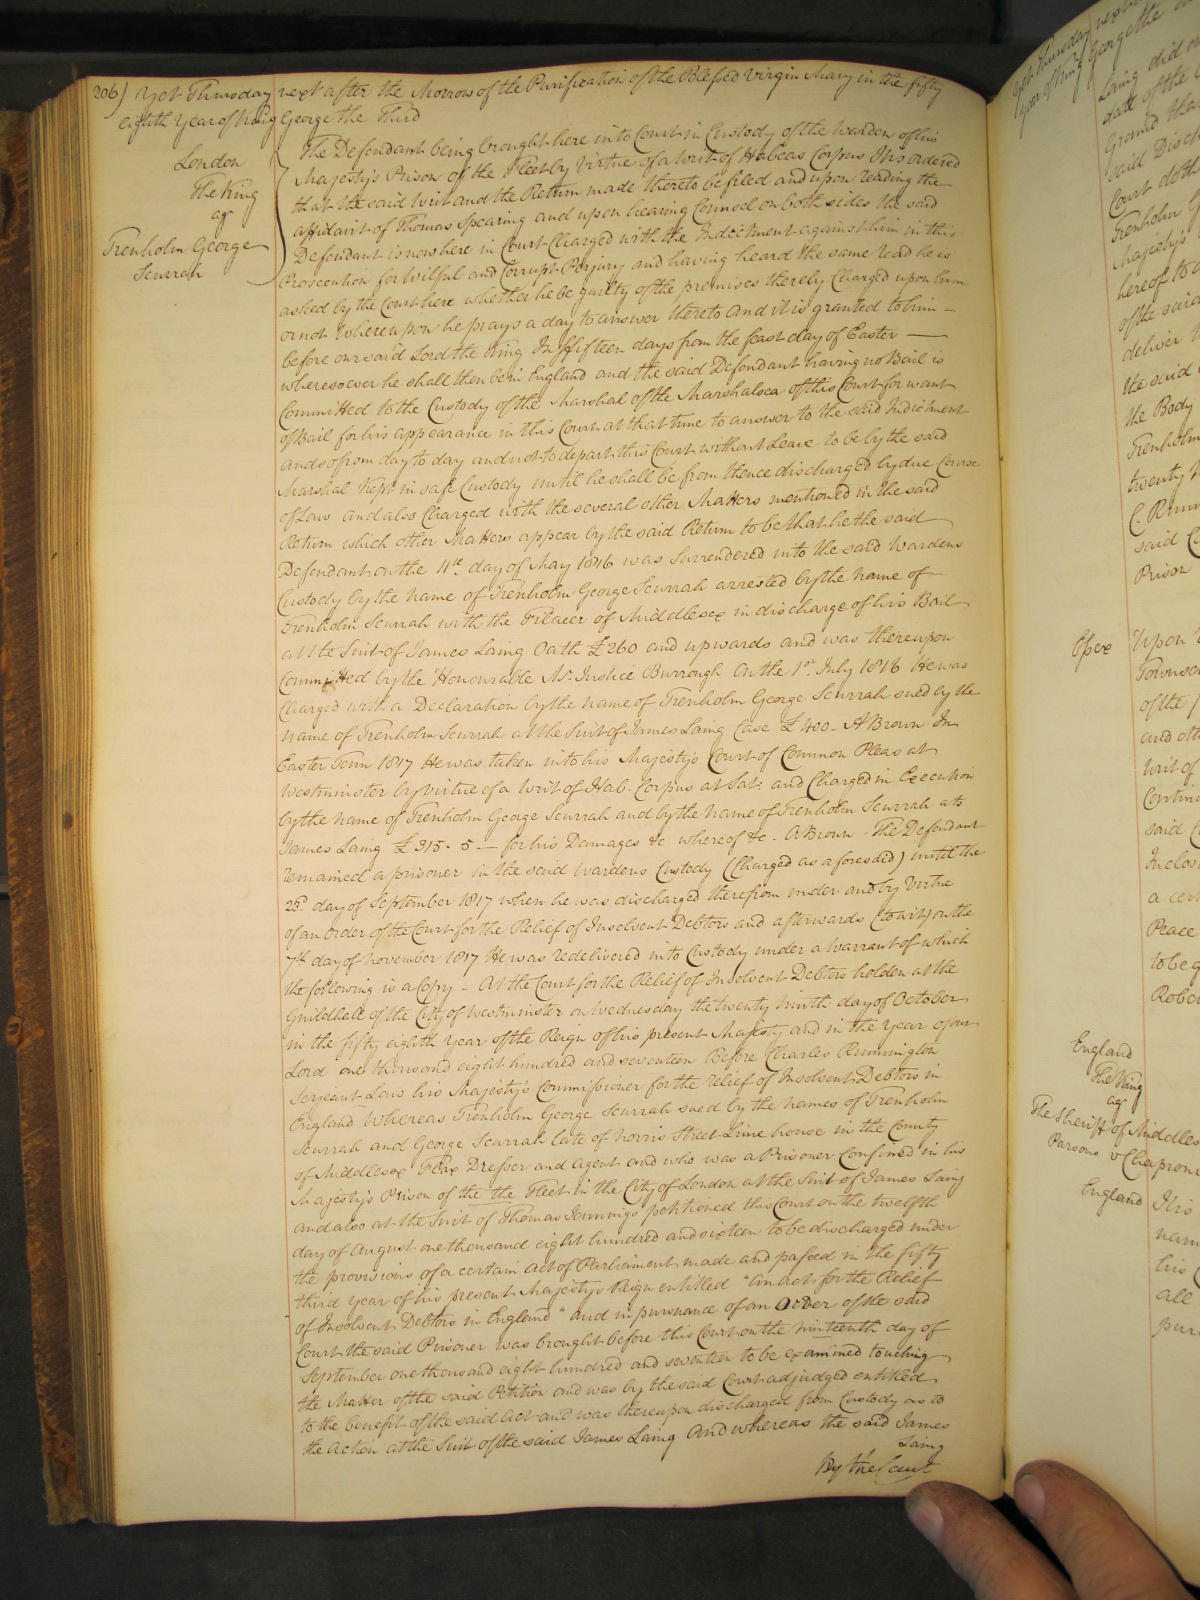 206) Yet Thursday next after the Morrow of the Purification of the Blessed Virgin Mary in the fifty
eighth Year of King George the Third
London
The King
agt
Trenholm George
Scurrah
The Defendant being brought here into Court in Custody of the Warden of his
Majesty's Prison of the Fleet by Virtue of a Writ of Habeas Corpus It is ordered
that the said Writ and the Return made thereto be filed and upon reading the
affidavit of Thomas Spearing and upon hearing Counsel on both sides the said
Defendant is now here in Court Charged with the Indictment against him in this
Prosecution for Wilful and Corrupt Perjury and having heard the same read he is
asked by the Court here whether he be guilty of the premises thereby Charged upon him
or not Whereupon he prays a day to answer thereto And it is granted to him –
before our said Lord the King In fifteen days from the feast day of Easter —
wheresoever he shall then be in England and the said Defendant having no Bail is
Committed to the Custody of the Marshal of the Marshalsea of this Court for want
of Bail for his appearance in this Court at that time to answer to the said Indictment
and so from day to day and not to depart this Court without Leave to be by the said
Marshal Kept in safe Custody until he shall be from thence discharged by due Course
of Law and also Charged with the several other Matters mentioned in the said
Return which other Matters appear by the said Return to be that he the said
Defendant on the 11th day of May 1816 was Surrendered into the said Wardens
Custody by the name of Trenholm George Scurrah arrested by the name of
Trenholm Scurrah with the Filacer of Middlesex in discharge of his Bail
at the Suit of James Laing Oath £260 and upwards and was thereupon
Committed by the Honourable Mr. Justice Burrough On the 1st July 1816 He was
Charged with a Declaration by the name of Trenholm George Scurrah sued by the
name of Trenholm Scurrah at the Suit of James Laing Case £400 - A Brown In
Easter Term 1817 He was taken into his Majesty's Court of Common Pleas at
Westminster by virtue of a Writ of Hab. Corpus at Sat: and Charged in Execution
by the name of Trenholm George Scurrah and by the name of Trenholm Scurrah ats
James Laing £315. 5 — for his Damages &c whereof &c. A Brown - The Defendant
remained a prisoner in the said Wardens Custody (Charged as aforesaid) until the
25d day of September 1817 when he was discharged therefrom under and by Virtue
of an order of the Court for the Relief of Insolvent Debtors and afterwards (to wit) on the
7th day of November 1817 He was redelivered into Custody under a Warrant of which
the following is a Copy - At the Court for the Relief of Insolvent Debtors holden at the
Guildhall of the City of Westminster on Wednesday the twenty Ninth day of October
in the fifty eighth Year of the Reign of his present Majesty and in the Year of our
Lord one thousand eight hundred and seventeen Before Charles Runnington
Serjeant Law his Majesty's Commissioner for the relief of Insolvent Debtors in
England Whereas Trenholm George Scurrah sued by the names of Trenholm
Scurrah and George Scurrah late of Norris Street Lime house in the County
of Middlesex Flax Dresser and Agent and who was a Prisoner Confined in his
Majesty's Prison of the the Fleet in the City of London at the Suit of James Laing
and also at the Suit of Thomas Jennings petitioned this Court on the twelfth
day of August one thousand eight hundred and sixteen to be discharged under
the provisions of a certain Act of Parliament made and passed in the fifty
third year of his present Majesty's Reign entitled "An act for the Relief
of Insolvent Debtors in England" and in pursuance of an Order of the said
Court the said Prisoner was brought before this Court on the nineteenth day of
September one thousand eight hundred and seventeen to be examined touching
the Matter of the said Petition and was by the said Court adjudged entitled
to the benefit of the said Act and was thereupon discharged from Custody as to
the Action at the Suit of the said James Laing And whereas the said James
Laing
By the Court
Essex
England
The King
agt
The Sheriff of Middles
England
Laing did
date of the
Ground tha
said Disch
Court doth
Trenholm G
Majesty's
hereof to
of the said
deliver
the said
the Body
Trenholm
twenty
C. Runn
said
Prison
Upon
Townsen
of the
and oth
Writ of
said
Inclos
a cert
Peace
to be g
Rober
It is
nam
his
all
pur